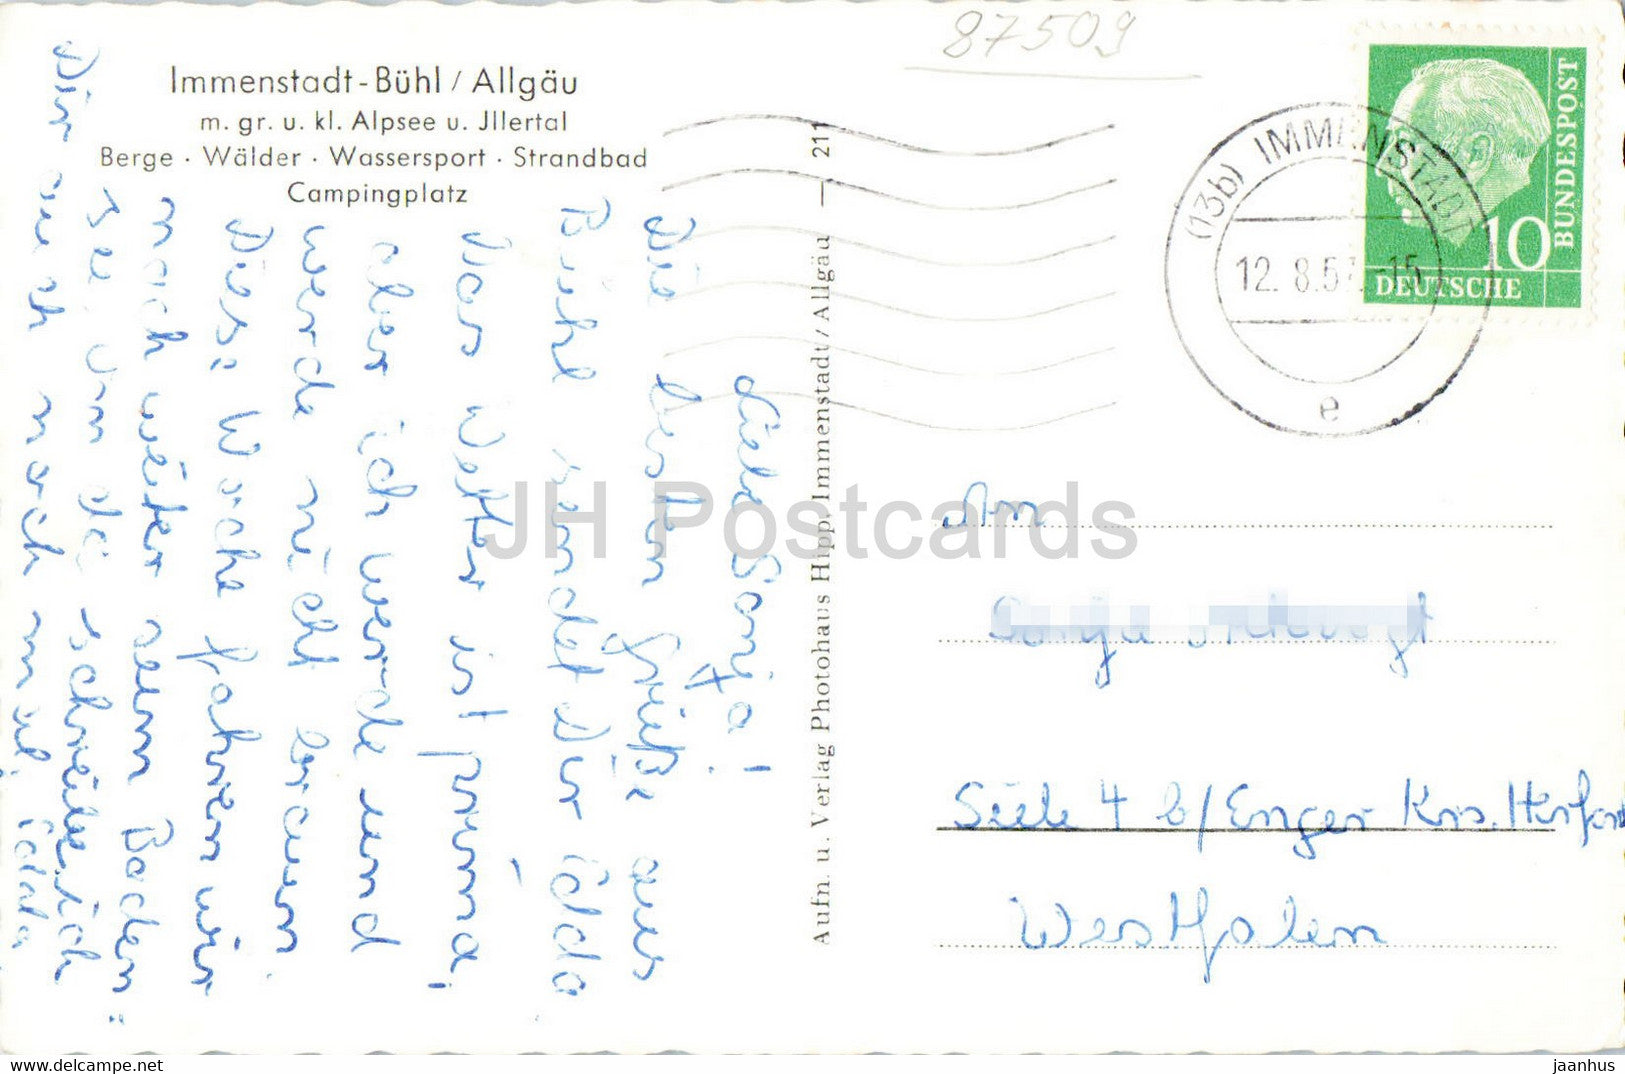 87509
Immenstadt-Bühl / Allgäu
m. gr. u. kl. Alpsee u. Jllertal
Berge · Wälder · Wassersport · Strandbad
Campingplatz
Liebe Sonja!
Die besten Grüße aus
Bühl sendet Dir Edda
Das Wetter ist prima,
aber ich werde und
werde nicht braun.
Diese Woche fahren wir
noch weiter zum Boden=
see. Von da schreibe ich
Dir auch noch mal. Edda
Aufn. u. Verlag Photohaus Hipp, Immenstadt/Allgäu — 211
(13b) IMMENSTADT
12. 8.57.-15
e
10
DEUTSCHE
BUNDESPOST
An
Siele 4 b/Enger Krs. Herford
Westfalen
JH Postcards
delcampe.net
jaanhus